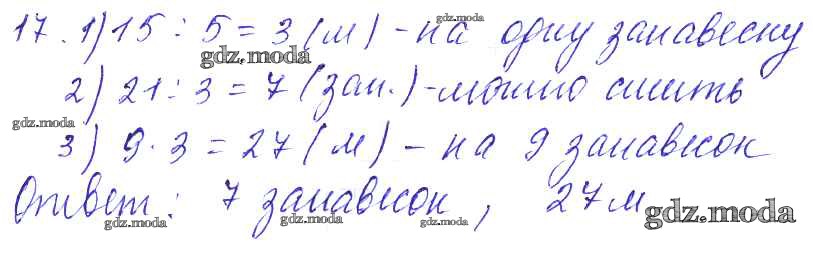 gdz.moda
17. 1) 15 : 5 = 3 (м) - на одну занавеску
gdz.moda
2) 21 : 3 = 7 (зан.) - можно сшить
gdz.moda
3) 9 · 3 = 27 (м) - на 9 занавесок
gdz.moda
Ответ: 7 занавесок, 27 м
gdz.moda gdz.moda gdz.moda gdz.moda